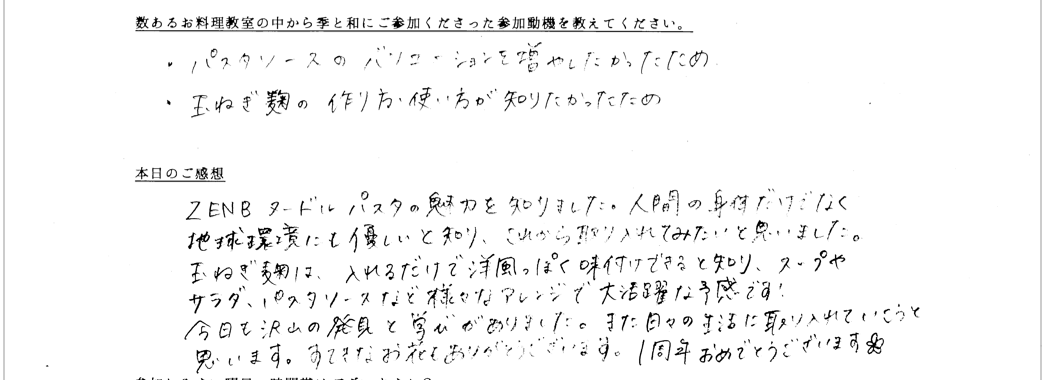 数あるお料理教室の中から季と和にご参加くださった参加動機を教えてください。
・パスタソースの バリエーションを増やしたかったため
・玉ねぎ麹の 作り方・使い方が 知りたかったため
本日のご感想
ZENB ヌードル パスタの魅力を知りました。人間の身体だけでなく
地球環境にも優しいと知り、これから取り入れてみたいと思いました。
玉ねぎ麹は、入れるだけで洋風っぽく味付けできると知り、スープや
サラダ、パスタソースなど様々なアレンジで大活躍な予感です!
今日も沢山の発見と学びがありました。また日々の生活に取り入れていこうと
思います。すてきなお花もありがとうございます。1周年おめでとうございます